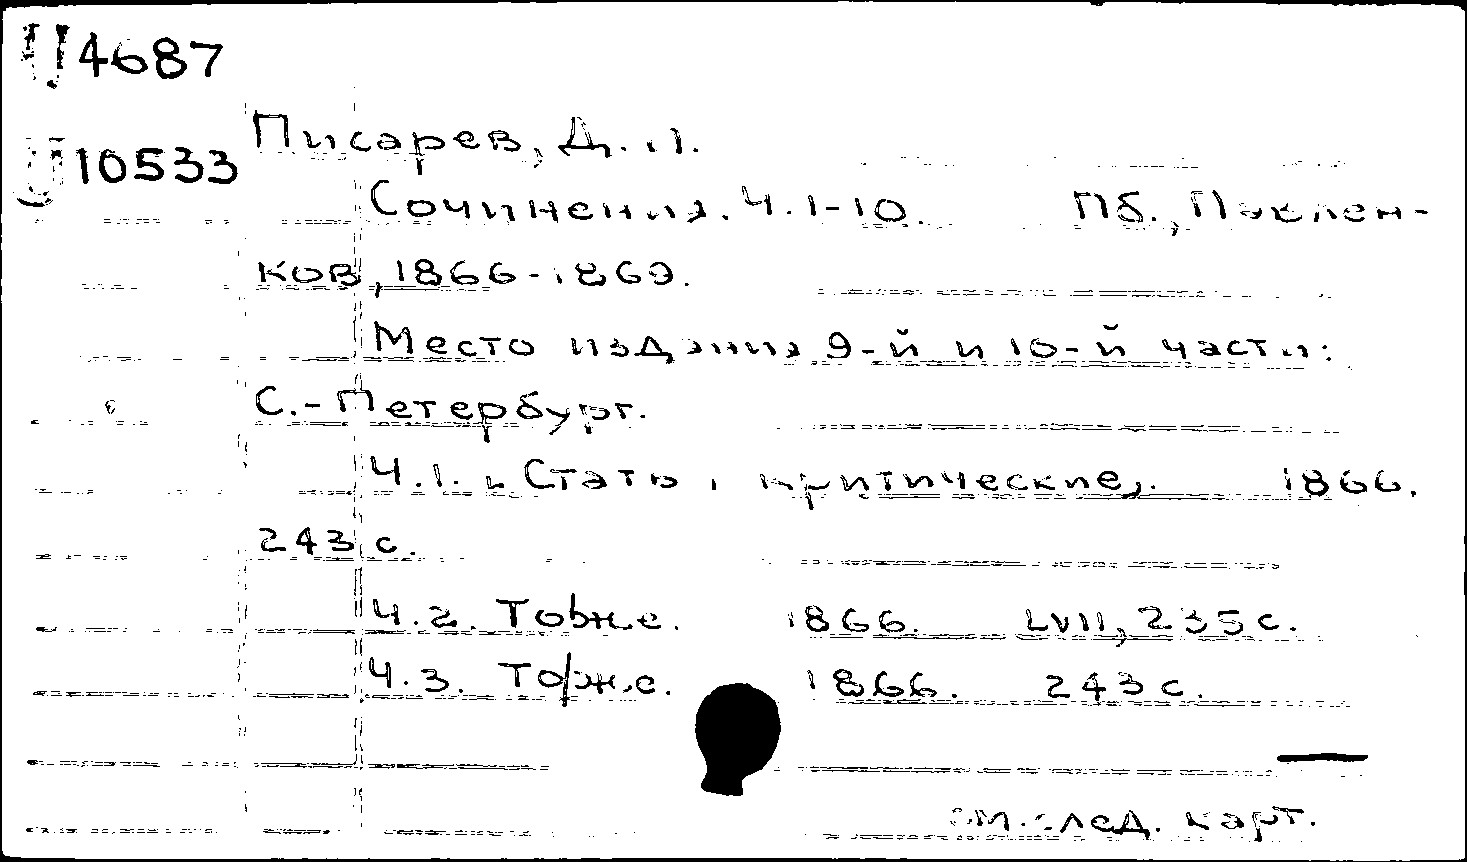 U4687
Писарев, Д. И.
U10533
Сочинения. Ч. 1-10. Пб., Павлен-
ков, 1866-1869.
Место издания 9-й и 10-й части:
С.-Петербург.
Ч. 1. Статьи критические. 1866.
243 с.
Ч. 2. То же. 1866. LVII, 235 с.
Ч. 3. То же. 1866. 243 с.
см. след. карт.